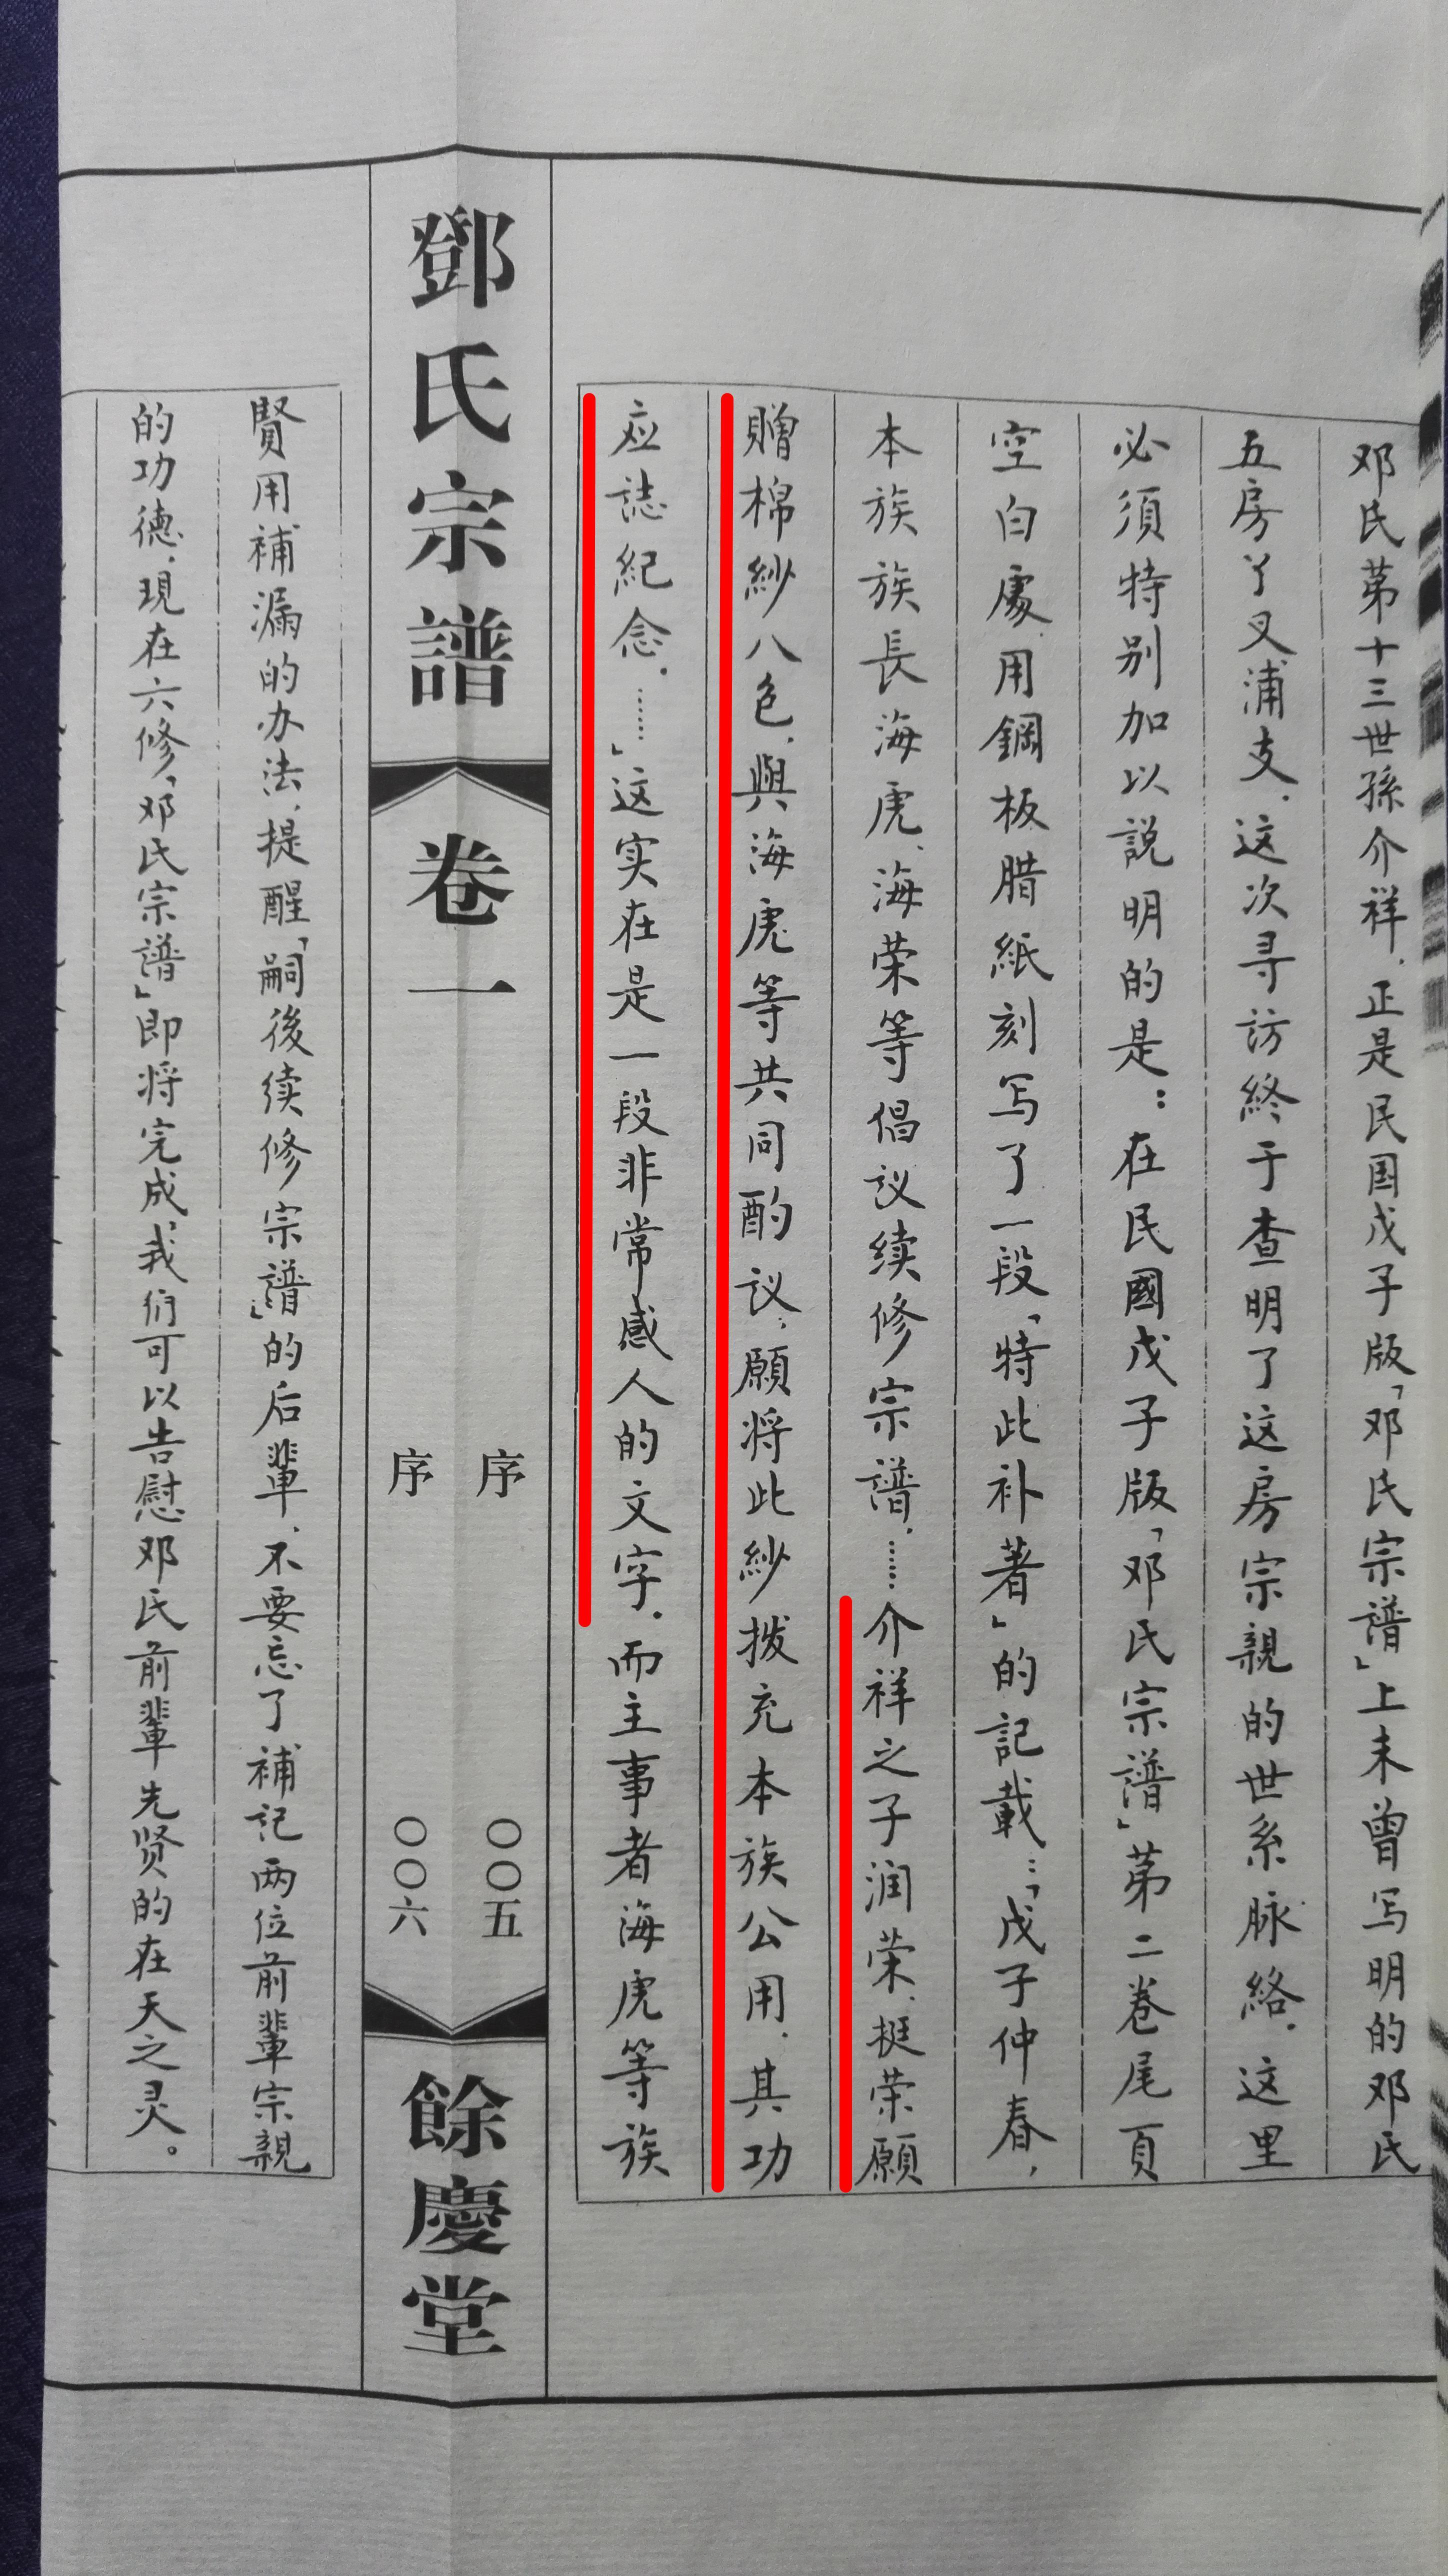 邓氏第十三世孫介祥，正是民国戊子版「邓氏宗譜」上未曾写明的邓氏
五房丫叉浦支．这次寻访終于查明了这房宗親的世系脉絡．这里
必須特别加以説明的是：在民國戊子版「邓氏宗譜」第二卷尾頁
空白處用鋼板腊紙刻写了一段「特此补著」的記載：「戊子仲春，
本族族長海虎、海荣等倡议续修宗譜．……介祥之子润荣、挺荣願
贈棉紗八色，與海虎等共同酌议，願将此紗拨充本族公用．其功
应誌紀念．……」这实在是一段非常感人的文字．而主事者海虎等族
鄧氏宗譜
卷一
序 〇〇五
序 〇〇六
餘慶堂
賢用補漏的办法，提醒「嗣後续修宗譜」的后輩，不要忘了補记两位前輩宗親
的功德．現在六修「邓氏宗譜」即将完成，我们可以告慰邓氏前輩先贤的在天之灵。